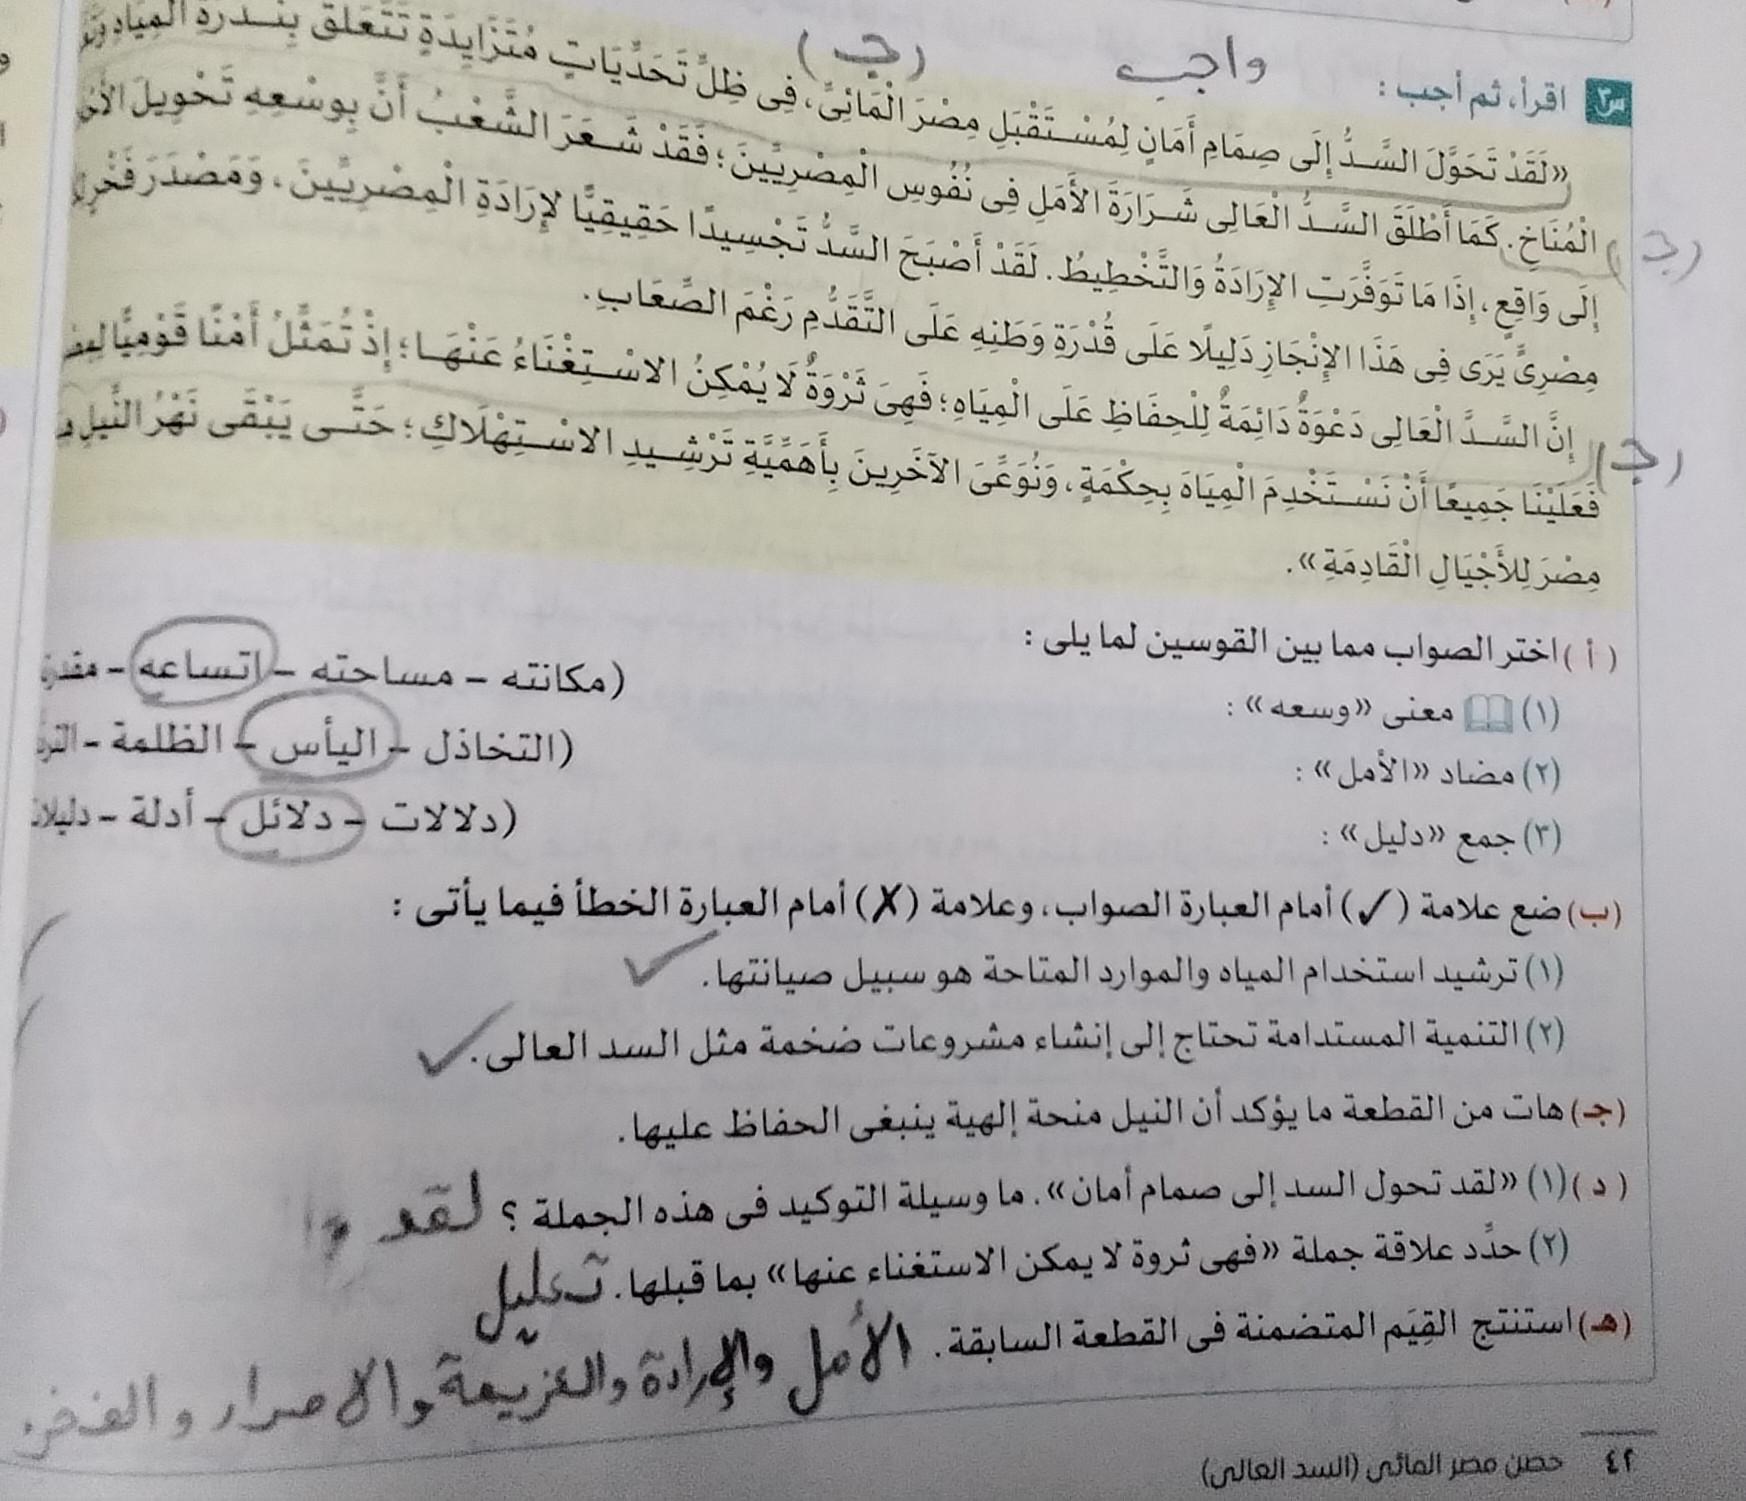 واجب
(جـ)
س٣ اقرأ، ثم أجب :
«لَقَدْ تَحَوَّلَ السَّدُّ إِلَى صِمَامِ أَمَانٍ لِمُسْتَقْبَلِ مِصْرَ الْمَائِىِّ، فِى ظِلِّ تَحَدِّيَاتٍ مُتَزَايِدَةٍ تَتَعَلَّقُ بِنُدْرَةِ الْمِيَاهِ
الْمُنَاخِ. كَمَا أَطْلَقَ السَّدُّ الْعَالِى شَرَارَةَ الأَمَلِ فِى نُفُوسِ الْمِصْرِيِّينَ؛ فَقَدْ شَعَرَ الشَّعْبُ أَنَّ بِوسْعِهِ تَحْوِيلَ
(جـ)
إِلَى وَاقِعٍ، إِذَا مَا تَوَفَّرَتِ الإِرَادَةُ وَالتَّخْطِيطُ. لَقَدْ أَصْبَحَ السَّدُّ تَجْسِيدًا حَقِيقِيًّا لإِرَادَةِ الْمِصْرِيِّينَ، وَمَصْدَرَ فَخْرٍ
مِصْرِىٍّ يَرَى فِى هَذَا الإِنْجَازِ دَلِيلًا عَلَى قُدْرَةِ وَطَنِهِ عَلَى التَّقَدُّمِ رَغْمَ الصِّعَابِ.
إِنَّ السَّدَّ الْعَالِى دَعْوَةٌ دَائِمَةٌ لِلْحِفَاظِ عَلَى الْمِيَاهِ؛ فَهِىَ ثَرْوَةٌ لَا يُمْكِنُ الاسْتِغْنَاءُ عَنْهَا؛ إِذْ تُمَثِّلُ أَمْنًا قَوْمِيًّا
(جـ)
فَعَلَيْنَا جَمِيعًا أَنْ نَسْتَخْدِمَ الْمِيَاهَ بِحِكْمَةٍ، وَنُوَعِّىَ الآخَرِينَ بِأَهَمِّيَّةِ تَرْشِيدِ الاسْتِهْلَاكِ؛ حَتَّى يَبْقَى نَهْرُ النِّيلِ
مِصْرَ لِلأَجْيَالِ الْقَادِمَةِ».
( أ ) اختر الصواب مما بين القوسين لما يلى :
(١) معنى «وسعه» : (مكانته - مساحته - اتساعه -
(٢) مضاد «الأمل» : (التخاذل - اليأس - الظلمة -
(٣) جمع «دليل» : (دلالات - دلائل - أدلة -
(ب) ضع علامة (✓) أمام العبارة الصواب، وعلامة (✗) أمام العبارة الخطأ فيما يأتى :
(١) ترشيد استخدام المياه والموارد المتاحة هو سبيل صيانتها. ✓
(٢) التنمية المستدامة تحتاج إلى إنشاء مشروعات ضخمة مثل السد العالى. ✓
(جـ) هات من القطعة ما يؤكد أن النيل منحة إلهية ينبغى الحفاظ عليها.
( د ) (١) «لقد تحول السد إلى صمام أمان». ما وسيلة التوكيد فى هذه الجملة ؟ لقد
(٢) حدِّد علاقة جملة «فهى ثروة لا يمكن الاستغناء عنها» بما قبلها. تعليل
(هـ) استنتج القِيَم المتضمنة فى القطعة السابقة. الأمل والإرادة والعزيمة والاصرار والفخر.
٤٢ حصن مصر المائى (السد العالى)